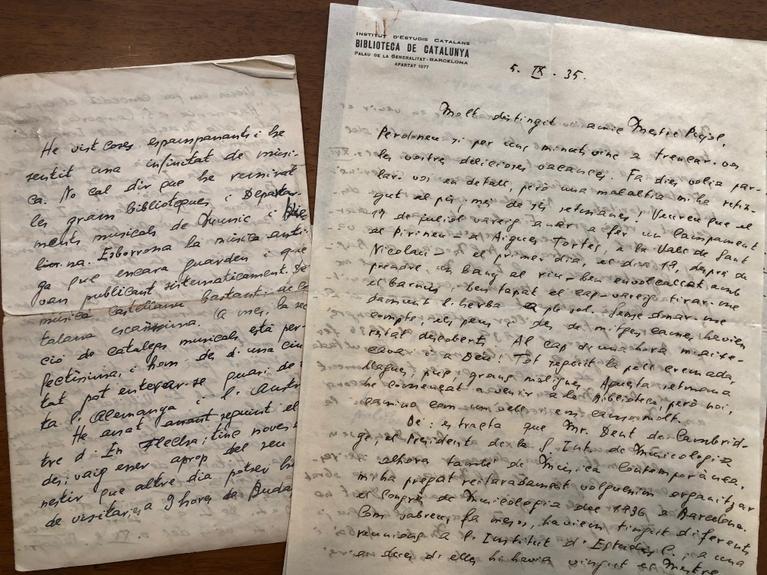 He vist coses espampanants i he
sentit una infinitat de músi-
ca. No cal dir que he remirat
les grans biblioteques i Departa-
ments musicals de Munic i
Esborrona la música anti-
ga que encara guarden i que
van publicant sistemàticament. De
música castellana bastant; de ca-
talana escassíssima. La sec-
ció de catàlegs musicals està per-
fectíssima, i hom des d'una ciu
tat pot enterar-se quasi de
ta l'Alemanya i l'Austri
He anat seguint el
tre d'En Flecha; tinc noves
des; vaig ésser aprop del seu
nestir que altre dia potser h
de visitar; a 9 hores de Buda
INSTITUT D'ESTUDIS CATALANS
BIBLIOTECA DE CATALUNYA
PALAU DE LA GENERALITAT-BARCELONA
APARTAT 1077
5. IX. 35.
Molt distingit amic Mestre Pujol,
Perdoneu si per uns minuts vinc a trencar-vos
les vostres delicioses vacances. Fa dies volia par-
lar-vos en detall, però una malaltia m'ha retin-
gut al pis més de sis setmanes! Veureu que el
17 de juliol vareig anar a fer un campament
al Pirineu = a Aigües Tortes, a la Vall de Sant
Nicolau = el primer dia, el dia 18, després de
prendre un bany al riu, ben envolcallat amb
el barnús i ben tapat el cap vareig tirar-me
damunt l'herba a ple sol. Sense donar-me
compte, els peus i des de mitges cames havien
estat descoberts. Al cap de una hora m'aixe-
cava i a Déu! Tot seguit la pell cremada,
llagues, pus i grans malignes. Aquesta setmana
he començat a venir a la Biblioteca, però noi,
camino com un vell i em canso molt.
Bé: es tracta que Mr. Dent de Cambrid-
ge, el President de la S. Int. de Musicologia
i alhora també de Música Contemporànea,
m'ha pregat reiteradament volguéssim organitzar
el Congrés de Musicologia del 1936 a Barcelona.
Com sabreu, fa mesos, havíem tingut diferents
reunions a l'Institut d'Estudis C. i a una
en dues d'elles hi havia vingut el Mestre